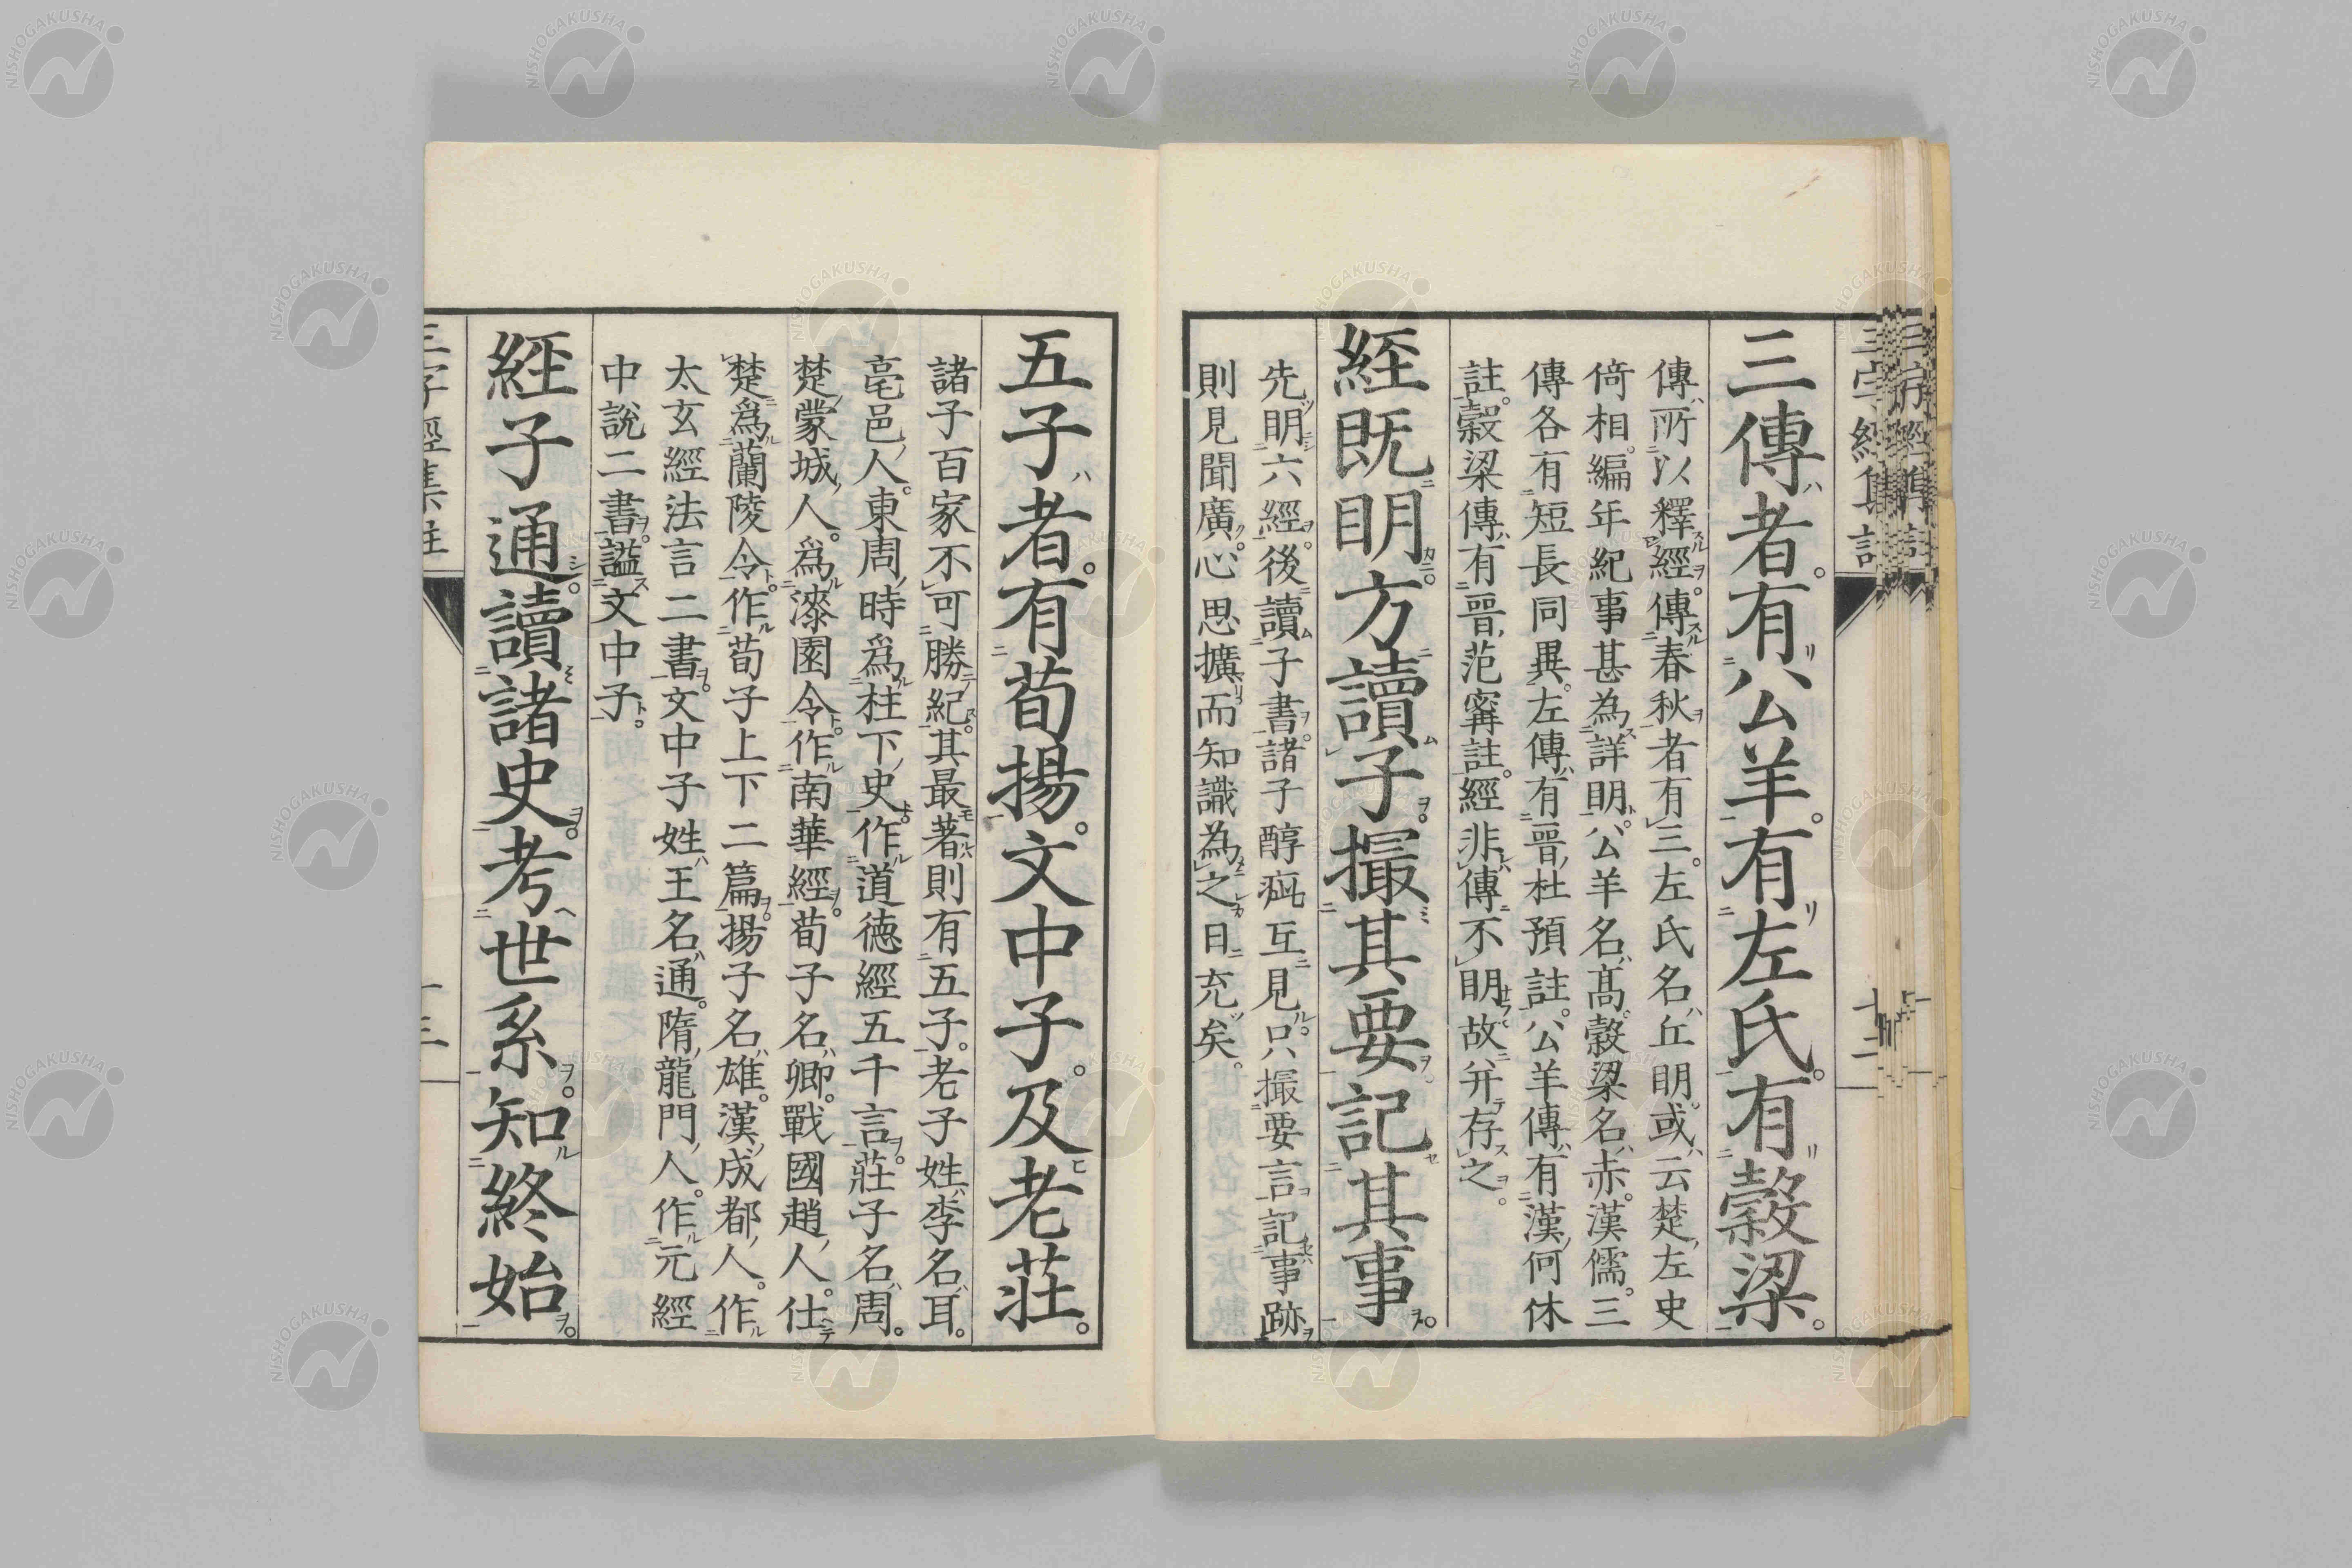 三傳者。有公羊。有左氏。有穀梁。
傳所以釋經。傳春秋者有三。左氏名丘明。或云楚左史
倚相。編年紀事甚為詳明。公羊名高。穀梁名赤。漢儒。三
傳各有短長同異。左傳有晉杜預註。公羊傳有漢何休
註。穀梁傳有晉范甯註。經非傳不明。故并存之。
經既明。方讀子。撮其要。記其事。
先明六經。後讀子書。諸子醇疵互見。只撮要言記事跡
則見聞廣。心思擴而知識為之日充矣。
五子者。有荀揚。文中子。及老莊。
諸子百家不可勝紀。其最著則有五子。老子姓李名耳。
亳邑人。東周時為柱下史。作道德經五千言。莊子名周。
楚蒙城人。為漆園令。作南華經。荀子名卿。戰國趙人。仕
楚為蘭陵令。作荀子上下二篇。揚子名雄。漢成都人。作
太玄經法言二書。文中子姓王名通。隋龍門人。作元經
中說二書。謚文中子。
經子通。讀諸史。考世系。知終始。
三字經集註
十三
NISHOGAKUSHA